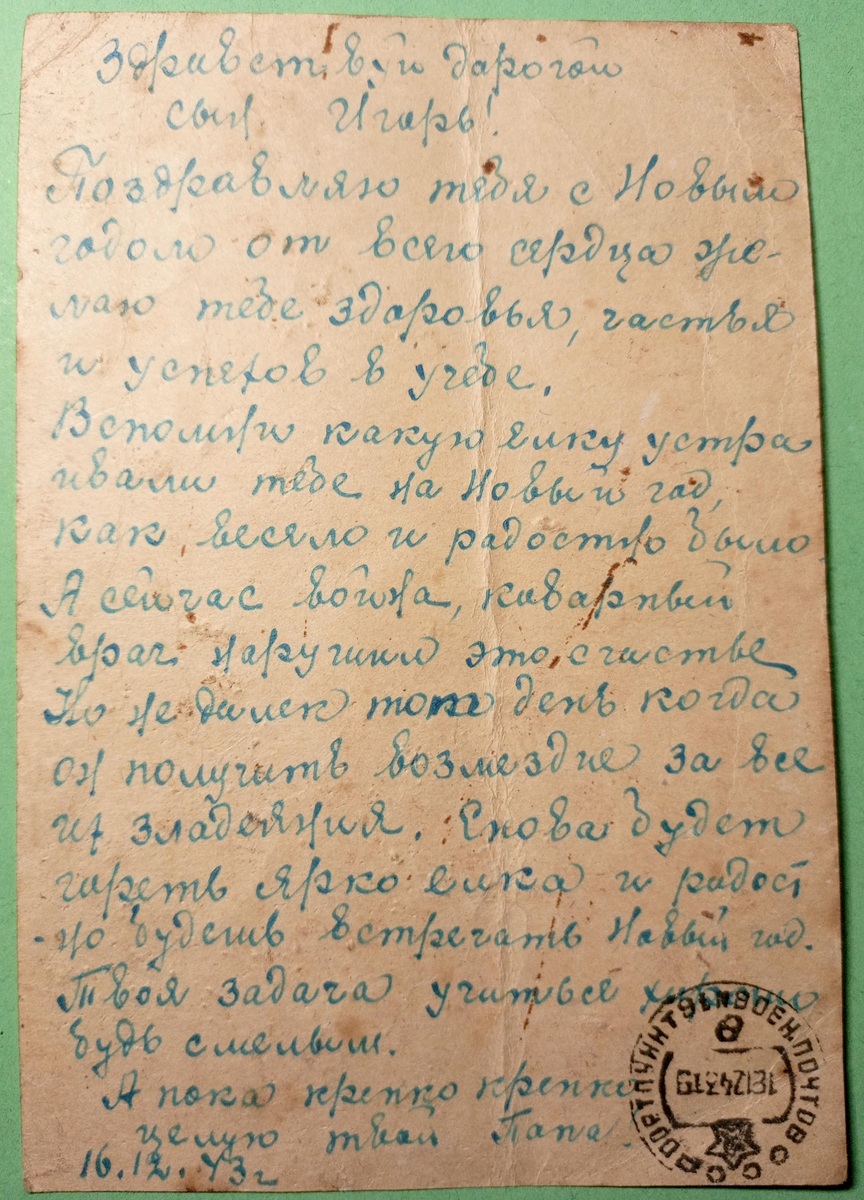 Здравствуй дорогой
сын Игорь!
Поздравляю тебя с Новым
годом от всего сердца же-
лаю тебе здоровья, частья
и успехов в учебе.
Вспомни какую елку устра
ивали тебе на Новый год,
как весело и радостно было
А сейчас война, коварный
враг нарушил это счастье
Но не далек тот день когда
он получить возмездие за все
их злодеяния. Снова будет
гореть ярко елка и радост
-но будешь встречать Новый год.
Твоя задача учиться хорошо
будь смелым.
А пока крепко крепко
целую твой Папа.
16.12.43 г